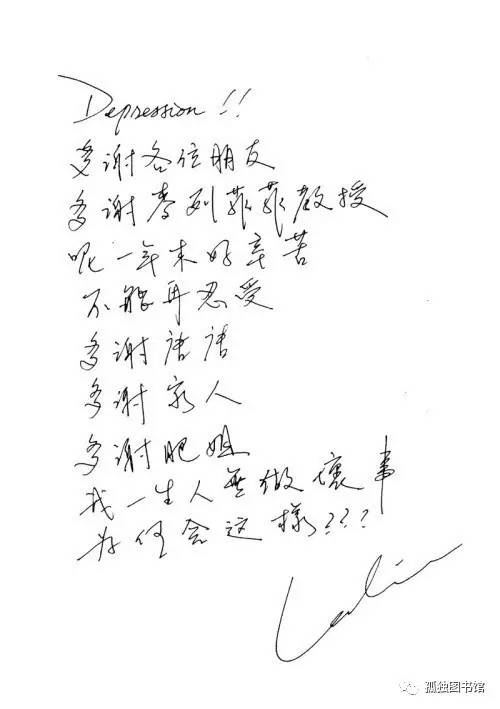 Depression!!
多謝各位朋友
多謝麥列菲菲教授
呢一年来好辛苦
不能再忍受
多謝唐唐
多謝家人
多謝肥姐
我一生人無做壞事
為何會这樣???
Leslie
孤独图书馆